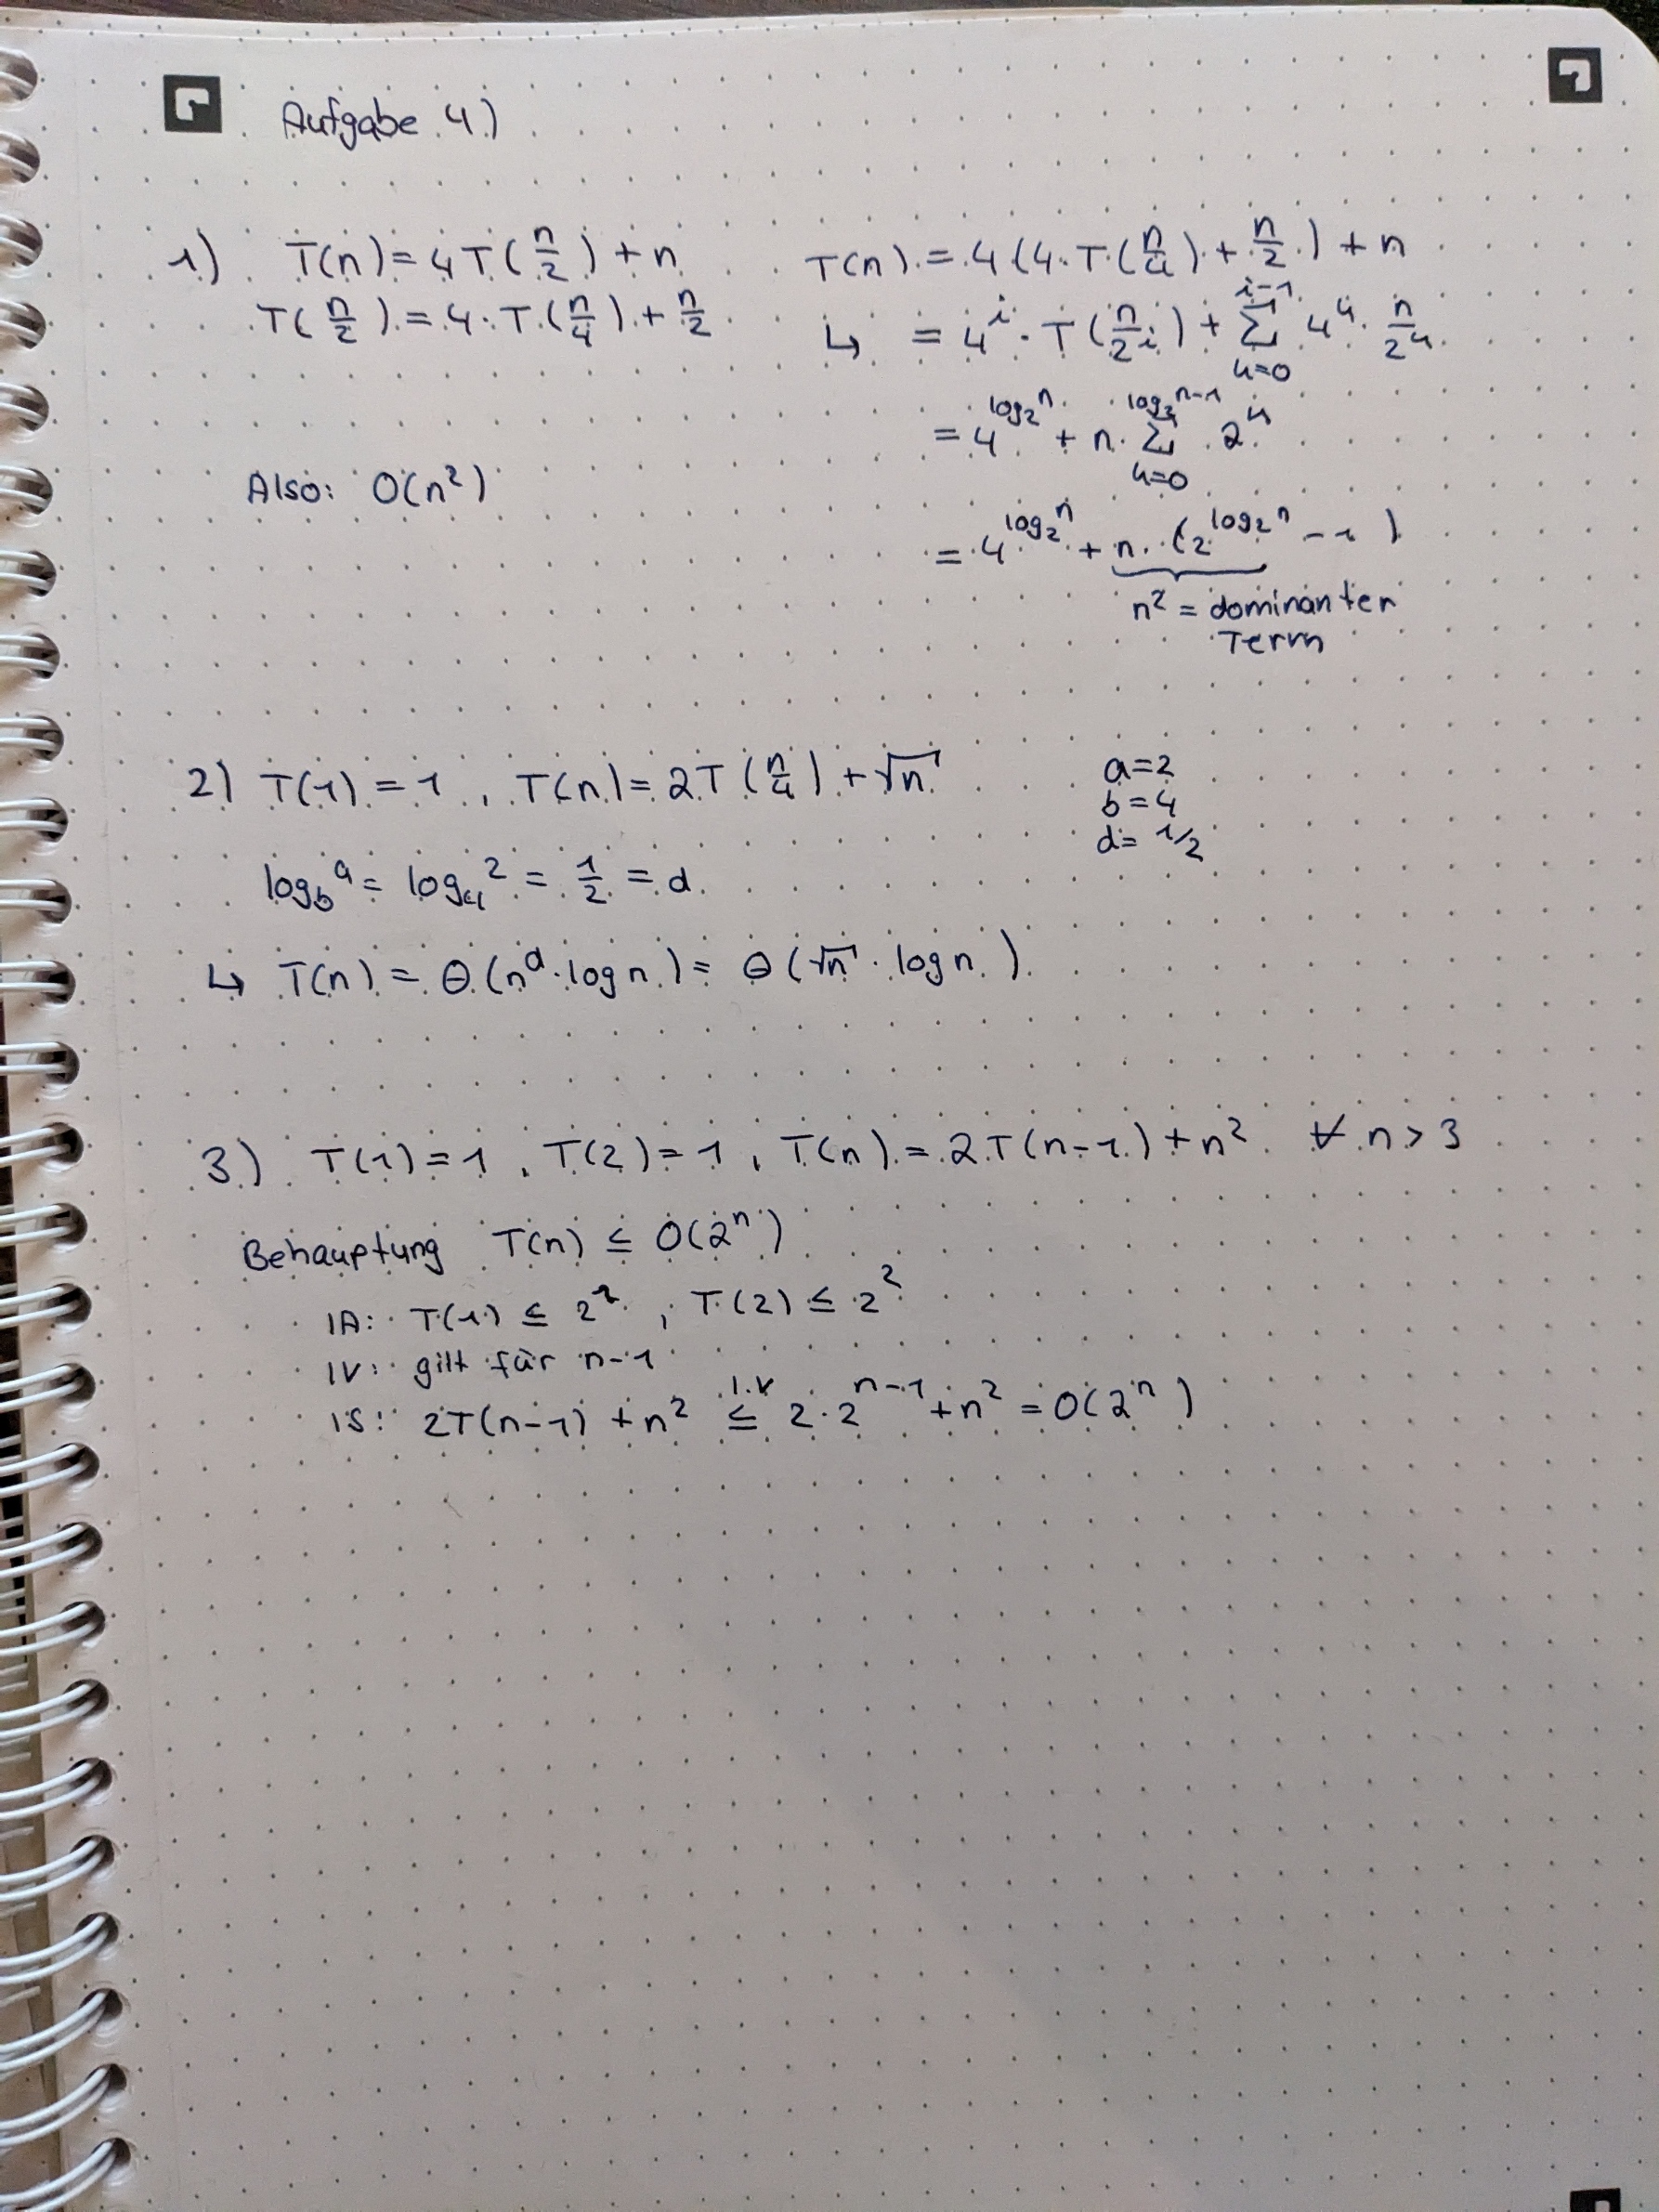 Aufgabe 4)
1) T(n) = 4T(n/2) + n
T(n/2) = 4·T(n/4) + n/2
T(n) = 4(4·T(n/4) + n/2) + n
↳ = 4^i · T(n/2^i) + Σ_{k=0}^{i-1} 4^k · n/2^k
= 4^{log₂ n} + n · Σ_{k=0}^{log₂ n-1} 2^k
Also: O(n²)
= 4^{log₂ n} + n · (2^{log₂ n} - 1)
n² = dominanter
Term
2) T(1) = 1, T(n) = 2T(n/4) + √n
a=2
b=4
d= 1/2
log_b a = log₄ 2 = 1/2 = d
↳ T(n) = Θ(n^d · log n) = Θ(√n · log n)
3) T(1) = 1, T(2) = 1, T(n) = 2T(n-1) + n² ∀ n > 3
Behauptung T(n) ≤ O(2ⁿ)
IA: T(1) ≤ 2¹, T(2) ≤ 2²
IV: gilt für n-1
IS: 2T(n-1) + n² ≤^{I.V} 2·2^{n-1} + n² = O(2ⁿ)